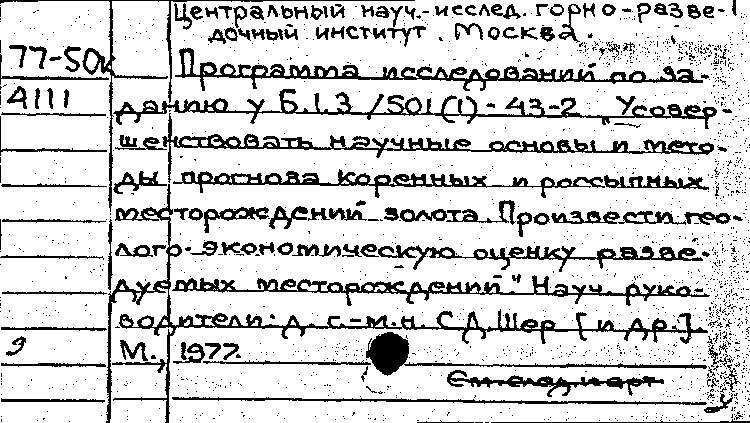 Центральный науч.-исслед. горно-разве-
дочный институт. Москва.
77-50к
4111
Программа исследований по за-
данию у Б.1.3/501(1)-43-2 „Усовер-
шенствовать научные основы и мето-
ды прогноза коренных и россыпных
месторождений золота. Произвести гео-
лого-экономическую оценку разве-
дуемых месторождений." Науч. руко-
водители: д. г.-м.н. С.Д.Шер [и др.].
9
М., 1977.